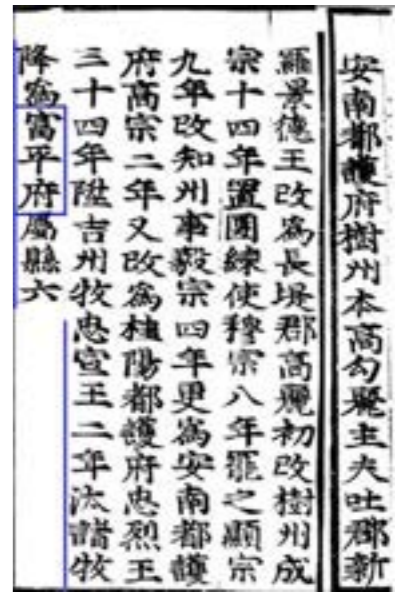 安南都護府樹州本高勾麗主夫吐郡新
羅景德王改爲長堤郡高麗初改樹州成
宗十四年置團練使穆宗八年罷之顯宗
九年改知州事毅宗四年更爲安南都護
府高宗二年又改爲桂陽都護府忠烈王
三十四年陞吉州牧忠宣王二年汰諸牧
降爲富平府屬縣六